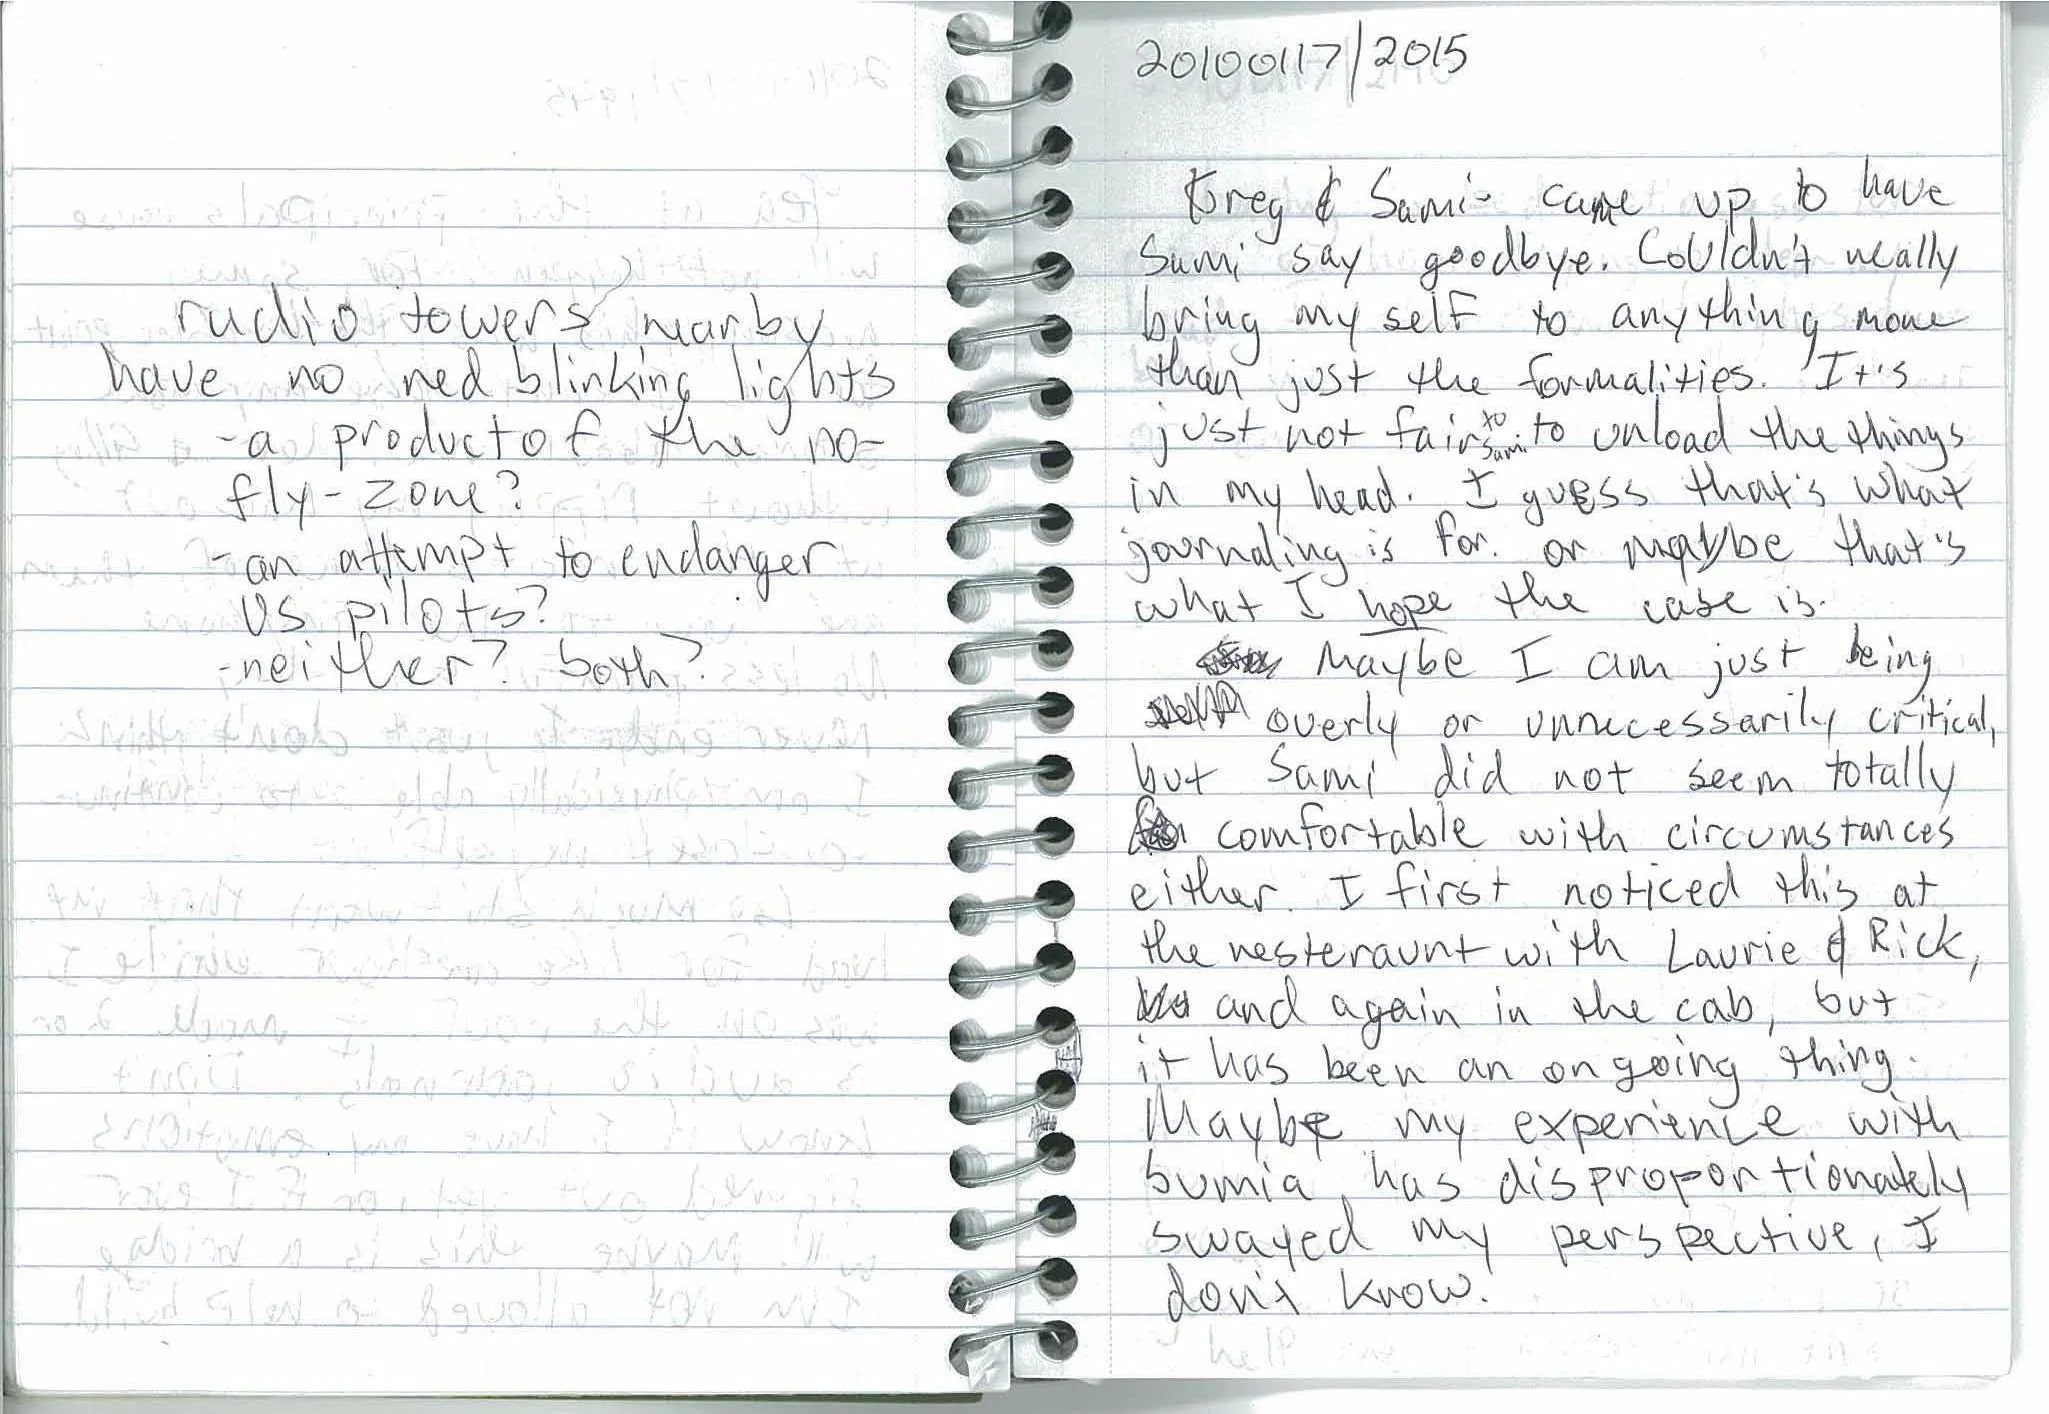 radio towers nearby
have no red blinking lights
-a product of the no-
fly-zone?
-an attempt to endanger
US pilots?
-neither? both?
20100117/2015
Greg & Sami came up to have
Sami say goodbye. Couldn't really
bring my self to anything more
than just the formalities. It's
just not fair to Sami to unload the things
in my head. I guess that's what
journaling is for. or maybe that's
what I hope the case is.
Maybe I am just being
overly or unnecessarily critical,
but Sami did not seem totally
comfortable with circumstances
either. I first noticed this at
the resteraunt with Laurie & Rick,
and again in the cab, but
it has been an ongoing thing.
Maybe my experience with
sumia has disproportionately
swayed my perspective, I
don't know.